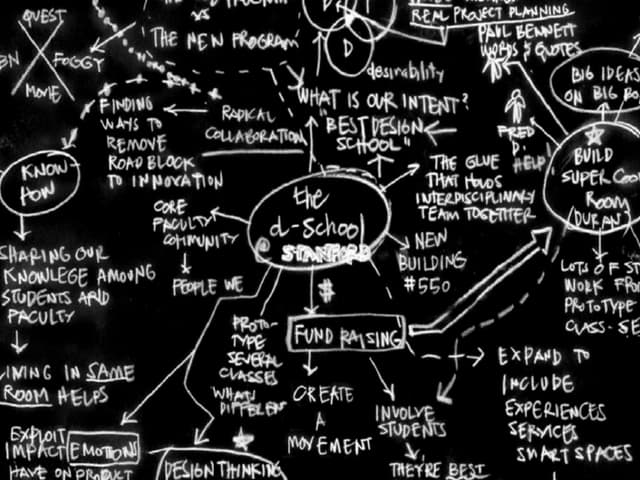 QUEST
FOGGY
MOVIE
VS
THE NEW PROGRAM
D
desirability
REAL PROJECT PLANNING
PAUL BENNETT
WORDS & QUOTES
BIG IDEAS
ON BIG
FINDING
WAYS TO
REMOVE
ROAD BLOCK
TO INNOVATION
RADICAL
COLLABORATION
WHAT IS OUR INTENT?
"BEST DESIGN
SCHOOL"
FRED
D.
HELP!
BUILD
SUPER COOL
ROOM
(DURAN)
KNOW-
HOW
THE GLUE
THAT HOLDS
INTERDISCIPLINARY
TEAM TOGETHER
the
d-school
@ STANFORD
CORE
FACULTY
COMMUNITY
PEOPLE WE
NEW
BUILDING
#550
SHARING OUR
KNOWLEGE AMOUNG
STUDENTS AND
FACULTY
LOTS OF
WORK FROM
PROTOTYPE
CLASS-
$
FUND RAISING
PROTO-
TYPE
SEVERAL
CLASSES
WHATS
DIFFERENT
EXPAND TO
INCLUDE
EXPERIENCES
SERVICES
SMART SPACES
LIVING IN SAME
ROOM HELPS
CREATE
A
MOVEMENT
INVOLVE
STUDENTS
THEY'RE BEST
EXPLOIT
IMPACT EMOTIONS
HAVE ON PRODUCT
DESIGN THINKING